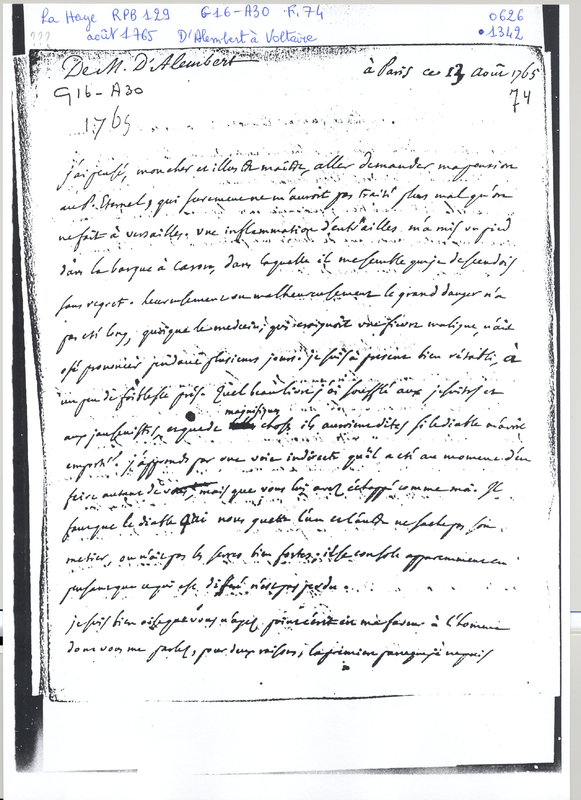 La Haye RPB 129 G16-A30 F. 74
0626
août 1765 D'Alembert à Voltaire
1342
De M. D'Alembert
à Paris ce 13 août 1765
G16-A30
74
1765
j'ai pensé, mon cher et illustre maître, aller demander ma pension
au P. Eternel, qui surement ne m'auroit pas traité plus mal qu'on
ne fait à versailles. une inflammation d'entrailles m'a mis un pied
dans la barque à Caron, dans laquelle il me semble que je descendois
sans regret. heureusement ou malheureusement le grand danger n'a
pas été long, quoique le medecin, qui craignoit une fievre maligne, n'ait
osé prononcer pendant plusieurs jours. je suis à present bien rétabli, à
un peu de foiblesse près. Quel beau livre j'ai soufflé aux jesuites et
aux jansenistes, et que de magnifiques choses ils auroient dites si le diable m'avoit
emporté. j'apprends par une voie indirecte qu'il a été au moment d'en
faire autant de vous, mais que vous lui avez échappé comme moi. Il
faut que le diable qui nous guette l'un et l'autre ne sache pas son
metier, ou n'ait pas les serres bien fortes. il se console apparemment en
pensant que ce qui est différé n'est pas perdu.
je suis bien aise que vous n'ayez point écrit en ma faveur à l'homme
dont vous me parlez, pour deux raisons; la premiere parce que je ne puis